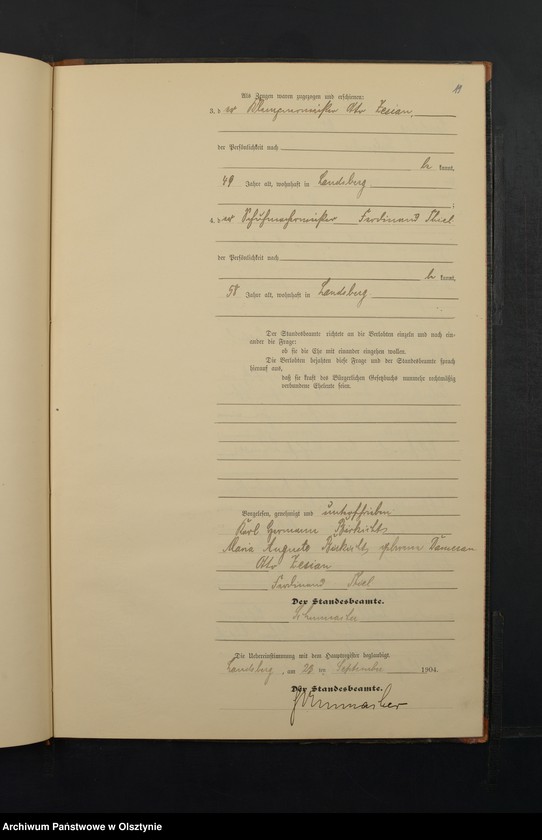 19
Als Zeugen waren zugezogen und erschienen:
3. der Klempnermeister Otto Zesian,
der Persönlichkeit nach
be kannt,
49 Jahre alt, wohnhaft in Landsberg
;
4. der Schuhmachermeister Ferdinand Thiel
der Persönlichkeit nach
be kannt,
58 Jahre alt, wohnhaft in Landsberg
Der Standesbeamte richtete an die Verlobten einzeln und nach ein-
ander die Frage:
ob sie die Ehe mit einander eingehen wollen.
Die Verlobten bejahten diese Frage und der Standesbeamte sprach
hierauf aus,
daß sie kraft des Bürgerlichen Gesetzbuchs nunmehr rechtmäßig
verbundene Eheleute seien.
Vorgelesen, genehmigt und unterschrieben
Karl Hermann
Maria Auguste geborene Dameran
Otto Zesian
Ferdinand Thiel
Der Standesbeamte.
Schumacher
Die Uebereinstimmung mit dem Hauptregister beglaubigt.
Landsberg, am ten September 1904.
Der Standesbeamte.
Schumacher
Archiwum Państwowe w Olsztynie